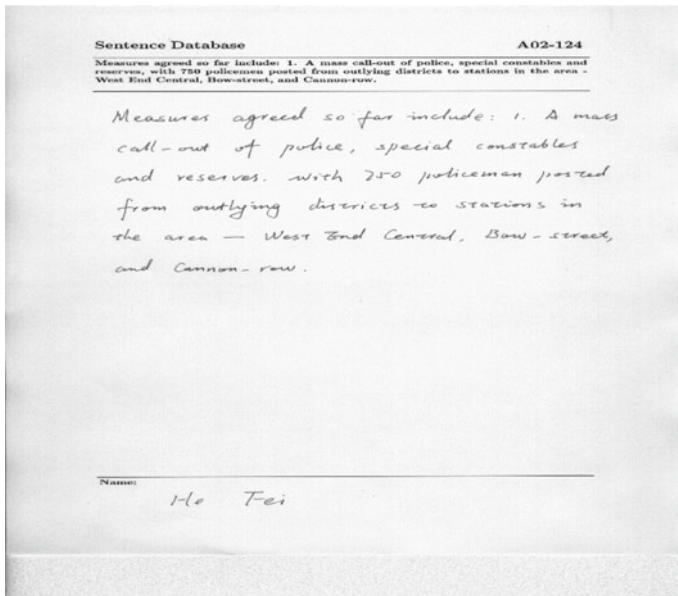 Sentence Database A02-124
Measures agreed so far include: 1. A mass call-out of police, special constables and
reserves, with 750 policemen posted from outlying districts to stations in the area -
West End Central, Bow-street, and Cannon-row.
Measures agreed so far include: 1. A mass
call-out of police, special constables
and reserves. with 750 policeman posted
from outlying districts to stations in
the area — West End Central, Bow-street,
and Cannon-row.
Name:
He Fei